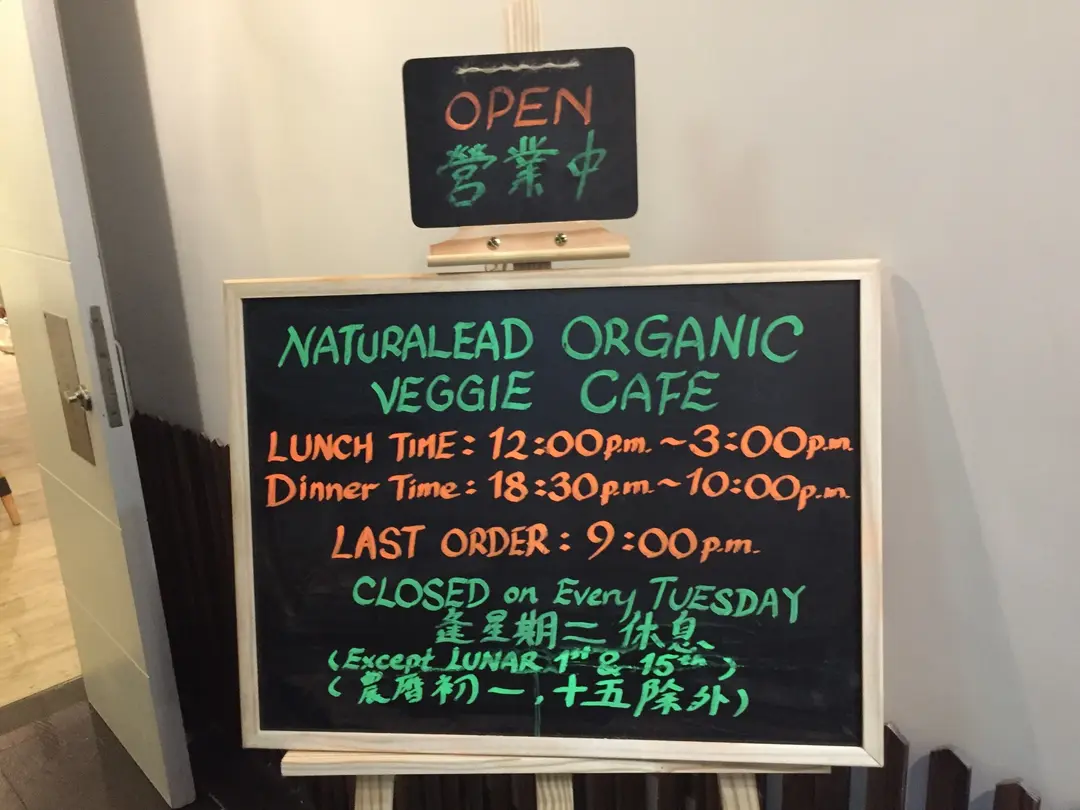 OPEN
營業中
NATURALEAD ORGANIC
VEGGIE CAFE
LUNCH TIME: 12:00p.m. ~ 3:00p.m.
Dinner Time: 18:30p.m ~ 10:00p.m.
LAST ORDER: 9:00p.m.
CLOSED on Every TUESDAY
逢星期二休息
(Except LUNAR 1st & 15th)
(農曆初一,十五除外)